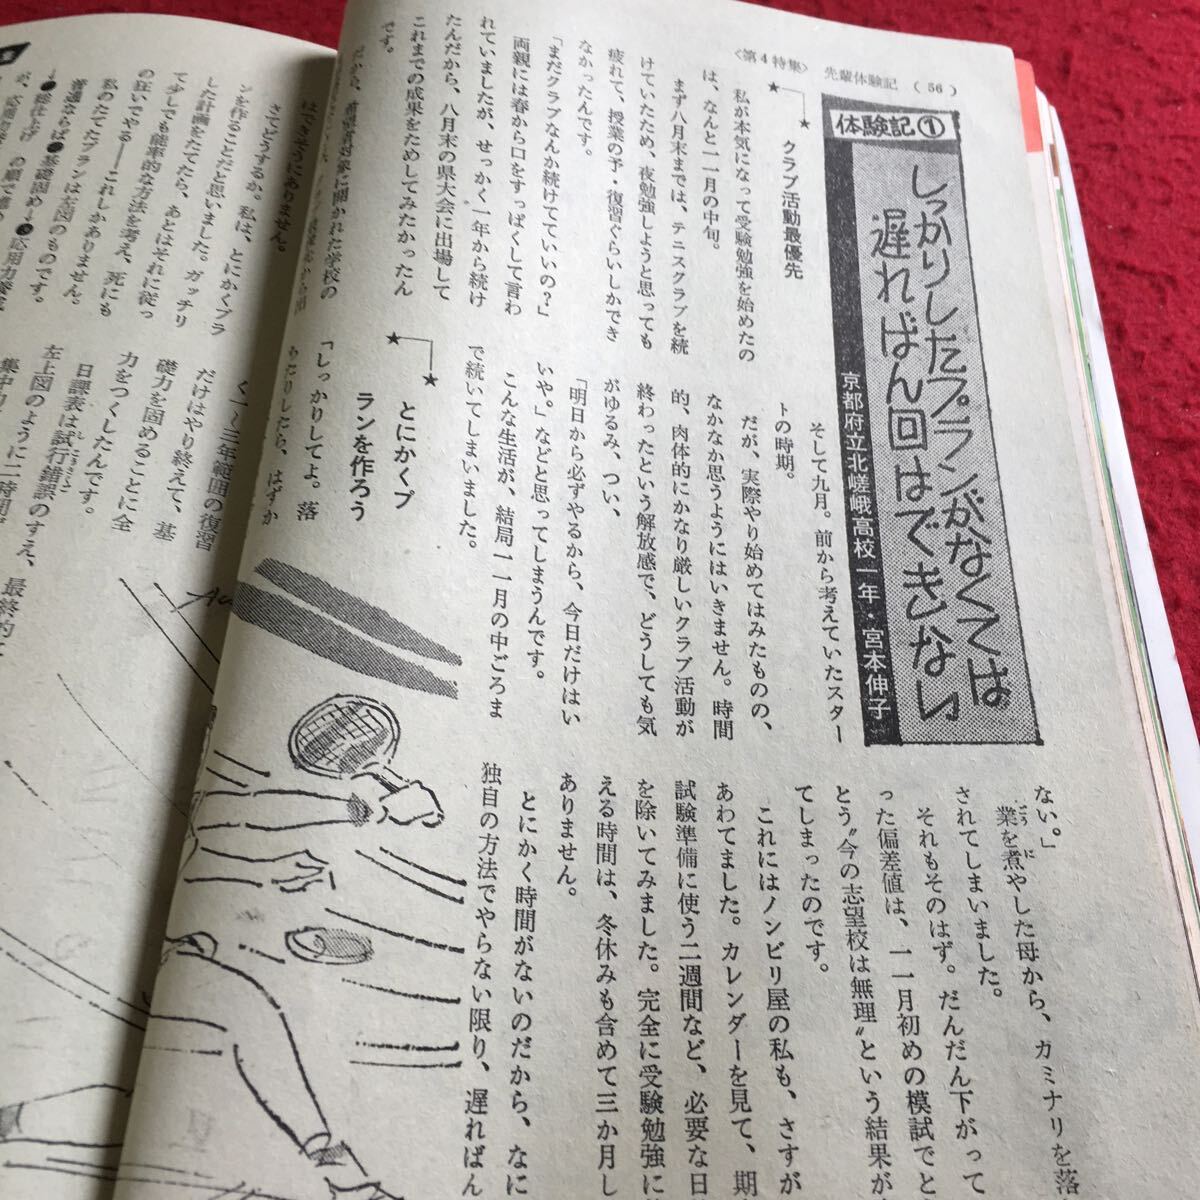 〈第4特集〉 先輩体験記 ( 56 )
体験記①
しっかりしたプランがなくては
遅ればん回はできない
京都府立北嵯峨高校一年・宮本伸子
クラブ活動最優先
私が本気になって受験勉強を始めたの
は、なんと一一月の中旬。
まず八月末までは、テニスクラブを続
けていたため、夜勉強しようと思っても
疲れて、授業の予・復習ぐらいしかでき
なかったんです。
「まだクラブなんか続けてていいの?」
両親には春から口をすっぱくして言わ
れていましたが、せっかく一年から続け
たんだから、八月末の県大会に出場して
これまでの成果をためしてみたかったん
です。
に開かれた学校の
そして九月。前から考えていたスター
トの時期。
だが、実際やり始めてはみたものの、
なかなか思うようにはいきません。時間
的、肉体的にかなり厳しいクラブ活動が
終わったという解放感で、どうしても気
がゆるみ、つい、
「明日から必ずやるから、今日だけはい
いや。」などと思ってしまうんです。
こんな生活が、結局一一月の中ごろま
で続いてしまいました。
とにかくプ
ランを作ろう
「しっかりしてよ。落
ちたりしたら、はずか
ない。」
業を煮やした母から、カミナリを落
されてしまいました。
それもそのはず。だんだん下がって
った偏差値は、一一月初めの模試でと
とう〝今の志望校は無理〟という結果が
てしまったのです。
これにはノンビリ屋の私も、さすが
あわてました。カレンダーを見て、期
試験準備に使う二週間など、必要な日
を除いてみました。完全に受験勉強に
える時間は、冬休みも含めて三か月し
ありません。
とにかく時間がないのだから、なに
独自の方法でやらない限り、遅ればん
はできそうにありません。
さてどうするか。私は、とにかくプラ
ンを作ることだと思いました。ガッチリ
した計画をたてたら、あとはそれに従っ
て少しでも能率的な方法を考え、死にも
の狂いでやる――これしかありません。
私のたてたプランは左図のものです。
普通ならば●基礎固め→●応用力養成
→●総仕上げ の順で進め
が、
く一〜三年範囲の復習
だけはやり終えて、基
礎力を固めることに全
力をつくしたんです。
日課表は試行錯誤のすえ、最終的て
左上図のように二時間ず